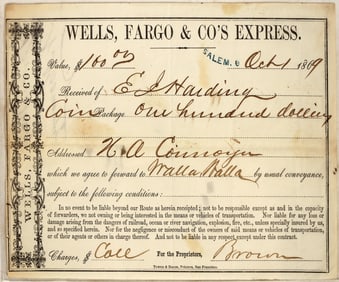 WELLS, FARGO & CO'S EXPRESS.
Value, $100.00 SALEM. Oct 1 1869
Received of E J Harding
Coin Package One hundred dollars
Addressed
which we agree to forward to Walla Walla by usual conveyance,
subject to the following conditions:
In no event to be liable beyond our Route as herein receipted; not to be responsible except as and in the capacity
of forwarders, we not owning or being interested in the means or vehicles of transportation. Nor liable for any loss or
damage arising from the dangers of railroad, ocean or river navigation, explosion, fire, etc., unless specially insured by us,
and so specified herein. Nor for the negligence or misconduct of the owners of said means or vehicles of transportation,
or of their agents or others in charge thereof. And not to be liable in any respect except under this contract.
Charges, $ Coll For the Proprietors, Brown
Towne & Bacon, Printers, San Francisco.
WELLS, FARGO & CO.